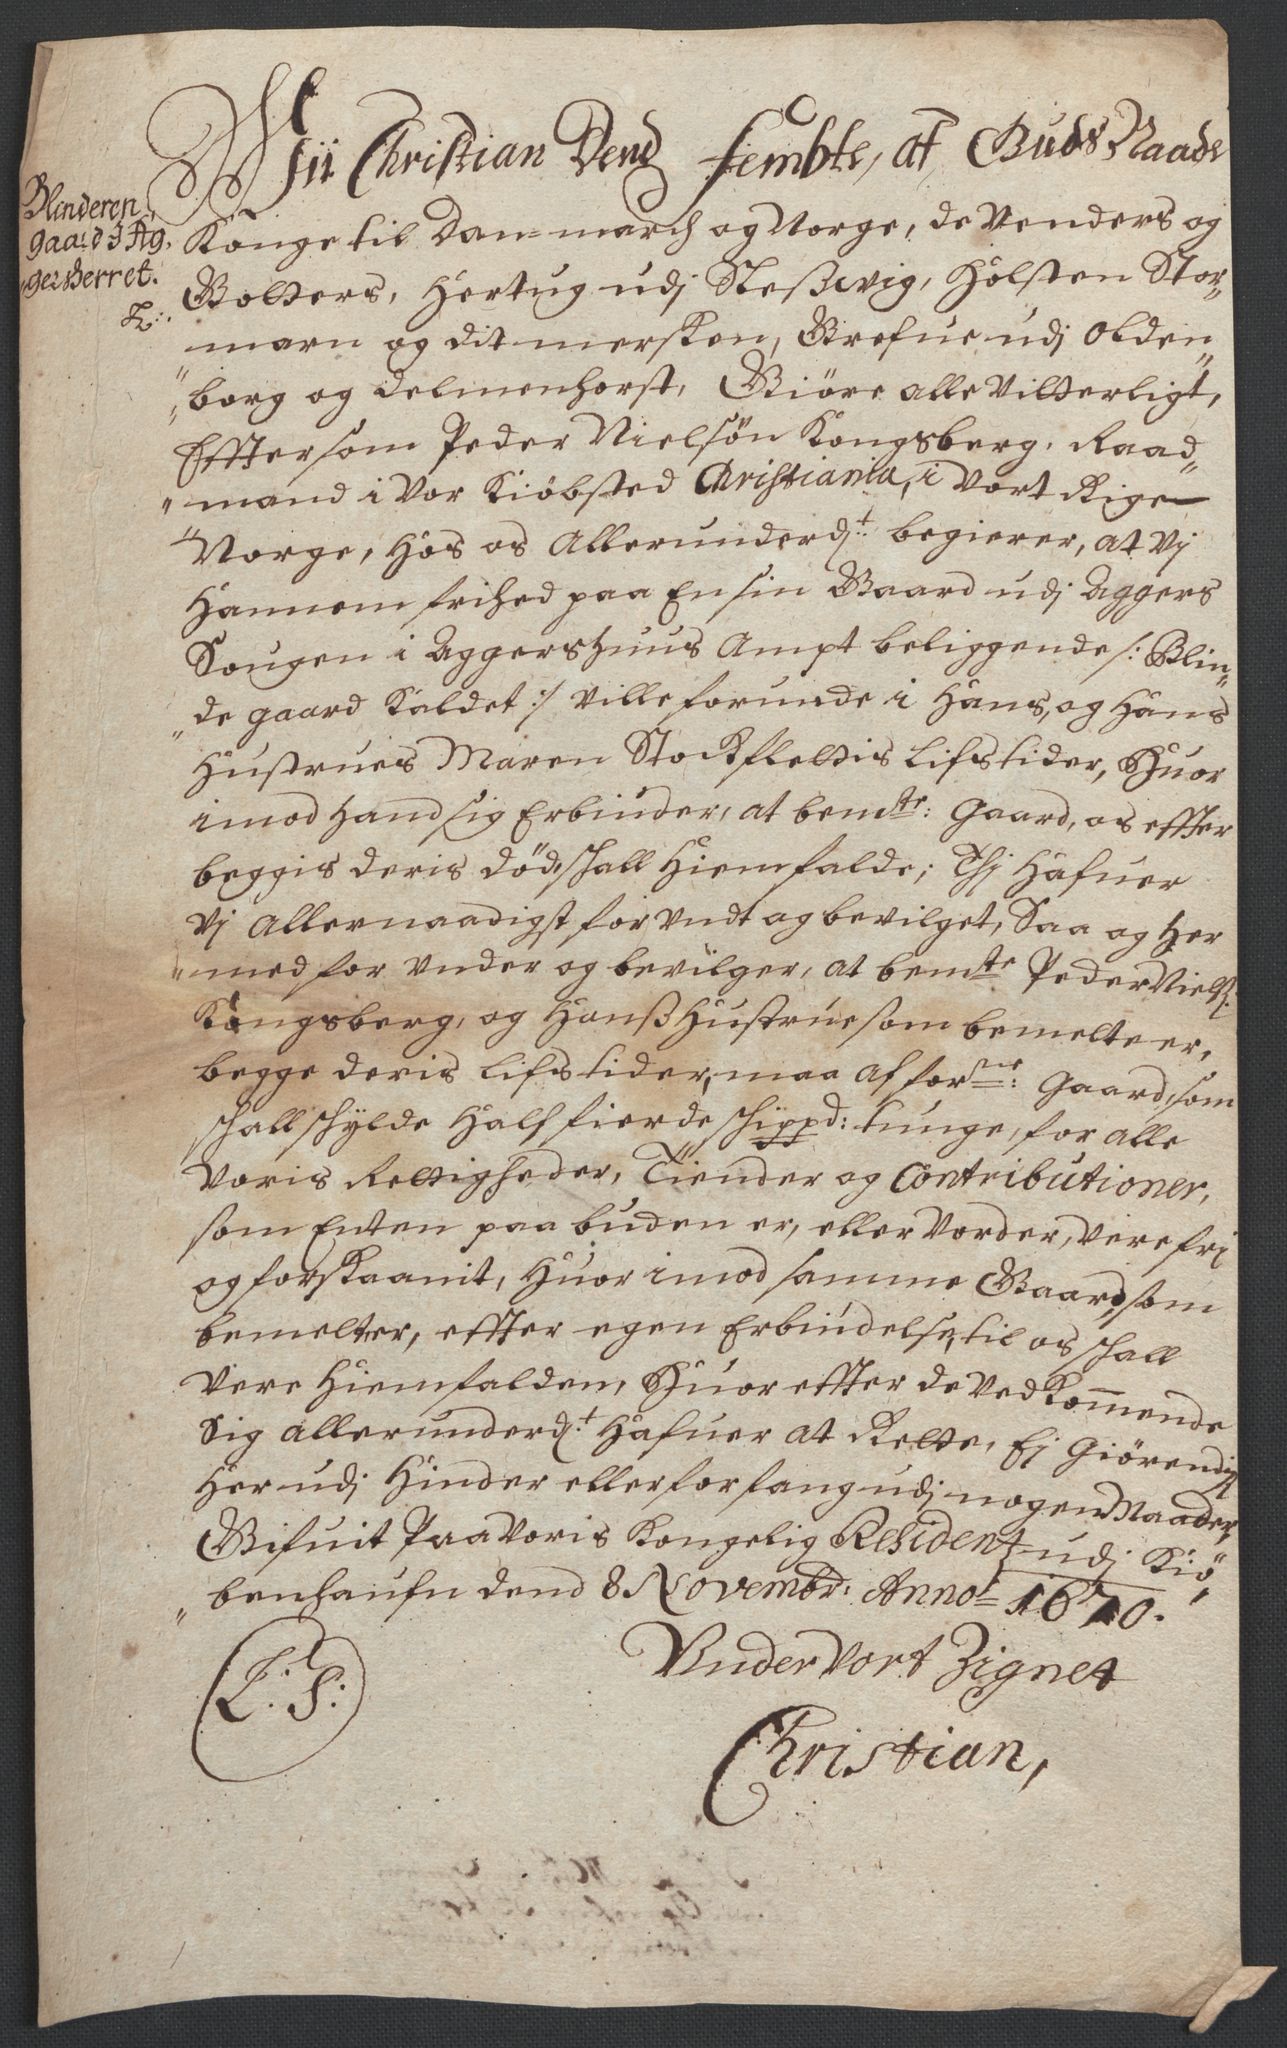 Blinderen
gaard i Ag,
gersherret.
Wii Christian Dend fembte, af Guds Naade
Konge til Danmarch og Norge, de Venders og
Gotters, Hertug udj Sleßwig, Holsten Stor„
marn og ditmersken, Grefue udj Olden„
„borg og Delmenhorst, Giöre alle Vitterligt,
Efftersom Peder Nielsön Kongsberg, Raad„
„mand i vor Kiöbsted Christiania, i vort Rige
Norge, hos os Allerunderd:t begierer, at Vj
hannem frihed paa En sin Gaard udj Aggers
Sougen i Aggershuus Ampt beliggende /: Blin„
„de gaard kaldet :/ ville forunde i hans, og hans
Hustrues Maren Stockflettis lifstider, Huor
imod hand sig Erbinder, at bemte: Gaard, os effter
beggis deris död, schall hiemfalde; Thj hafuer
Vj Allernaadigst forundt og bevilget, Saa og her
„med for vnder og bevilger, at bemte Peder Nielß:
Kongsberg, og hanß Hustrue som bemelte er,
begge deris lifstider, maa af forne: Gaard, som
schall schylde half fierde schippd: tunge, for alle
voris Rettigheder, Tiender og Contributioner,
som Enten paabuden er, eller vorder, vere fri
og forskaanit, Huor imod samme Gaard, som
bemelt er, effter egen Erbindelse, til os schall
vere hiemfalden, Huor effter de vedkommende
sig allerunderd:t hafuer at Rette, Ej Giörendis
her udj hinder eller forfang udj nogen Maader,
Gifuit Paa voris Kongelig Residentz udj Kiö„
„benhaufn dend 8 Novembr: Anno 1670.
Vnder vort Zignet
L. S:
Christian,